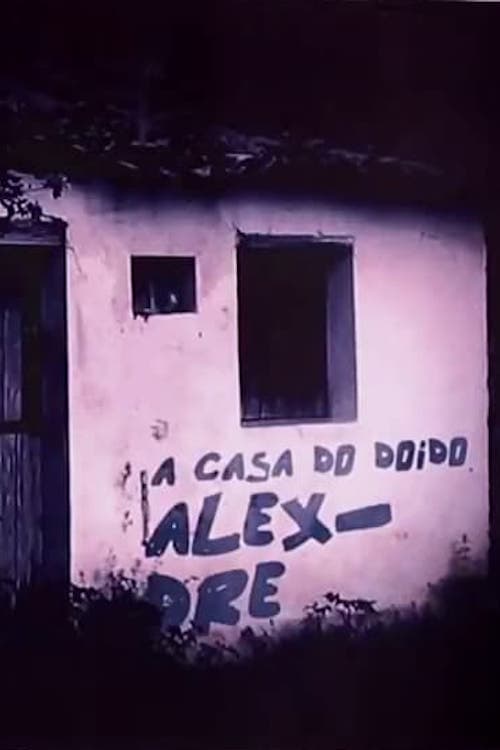 A CASA DO DOiDO.
ALEX-
DRE